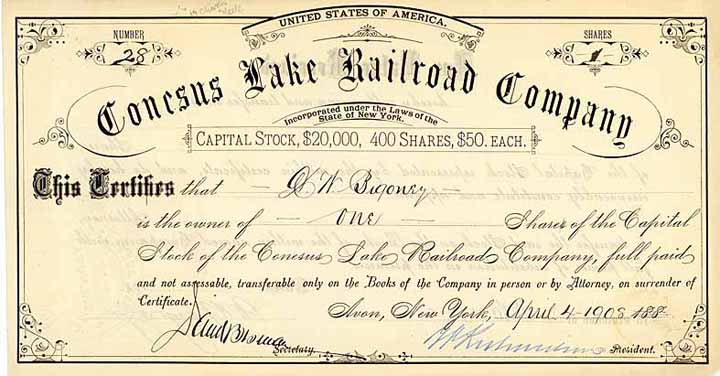 UNITED STATES OF AMERICA.
NUMBER
28
SHARES
1
Conesus Lake Railroad Company
Incorporated under the Laws of the
State of New York.
CAPITAL STOCK, $20,000, 400 SHARES, $50. EACH.
This Certifies that
is the owner of — one — Shares of the Capital
Stock of the Conesus Lake Railroad Company, full paid
and not assessable, transferable only on the Books of the Company in person or by Attorney, on surrender of
Certificate.
Avon, New York, April 4 - 1903 188
Secretary.
President.